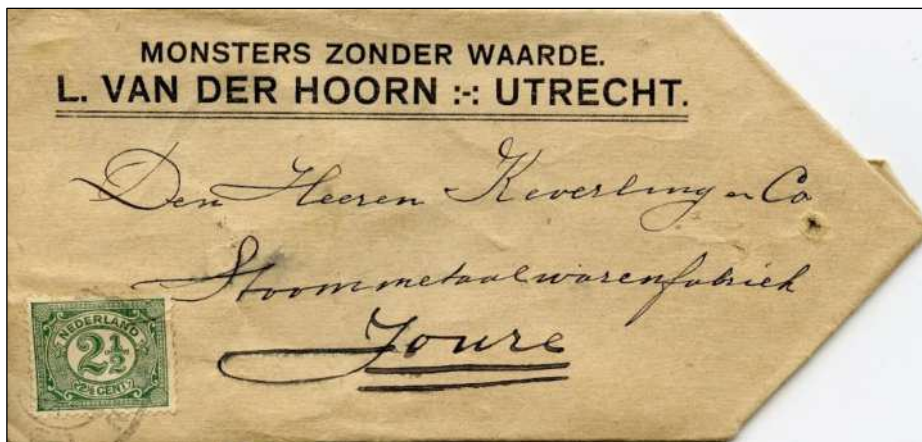 MONSTERS ZONDER WAARDE.
L. VAN DER HOORN :-: UTRECHT.
Den Heeren Keverling en Co
Stoommetaalwarenfabriek
Joure
NEDERLAND
2½
2½ CENT